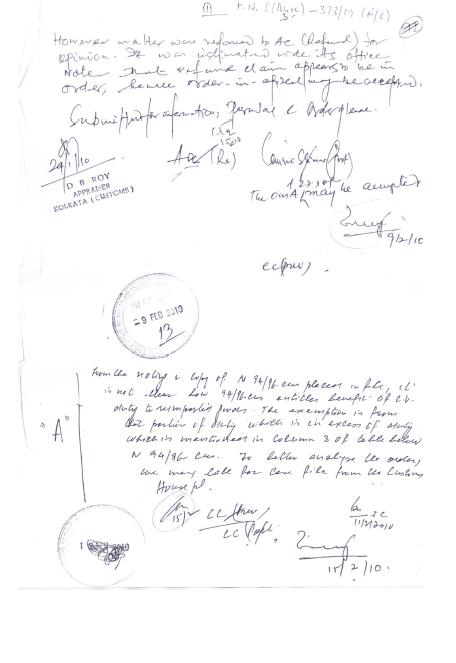 III F. N. S(Misc) - 373/09 (R/C)
However matter was referred to AC (Refund) for
opinion. It was intimated vide its office
Note that refund claim appears to be in
order, hence order-in-appeal may be accepted.
Submitted for information, perusal & order please.
24/1/10
D R ROY
APPRAISER
KOLKATA (CUSTOMS)
The may be accepted
9/2/10
CC(prev).
9 FEB 2010
13
From the noting & copy of N 94/96 cus placed in file, it
is not clear how 94/96 cus entitles benefit of
duty to reimported goods. The exemption is from
that portion of duty which is in excess of duty
which is mentioned in column 3 of table below
N 94/96 cus. To better analyse the order,
we may call for case file from the Customs
House pl.
"A"
15/2
CC
11/2/2010
15/2/10.